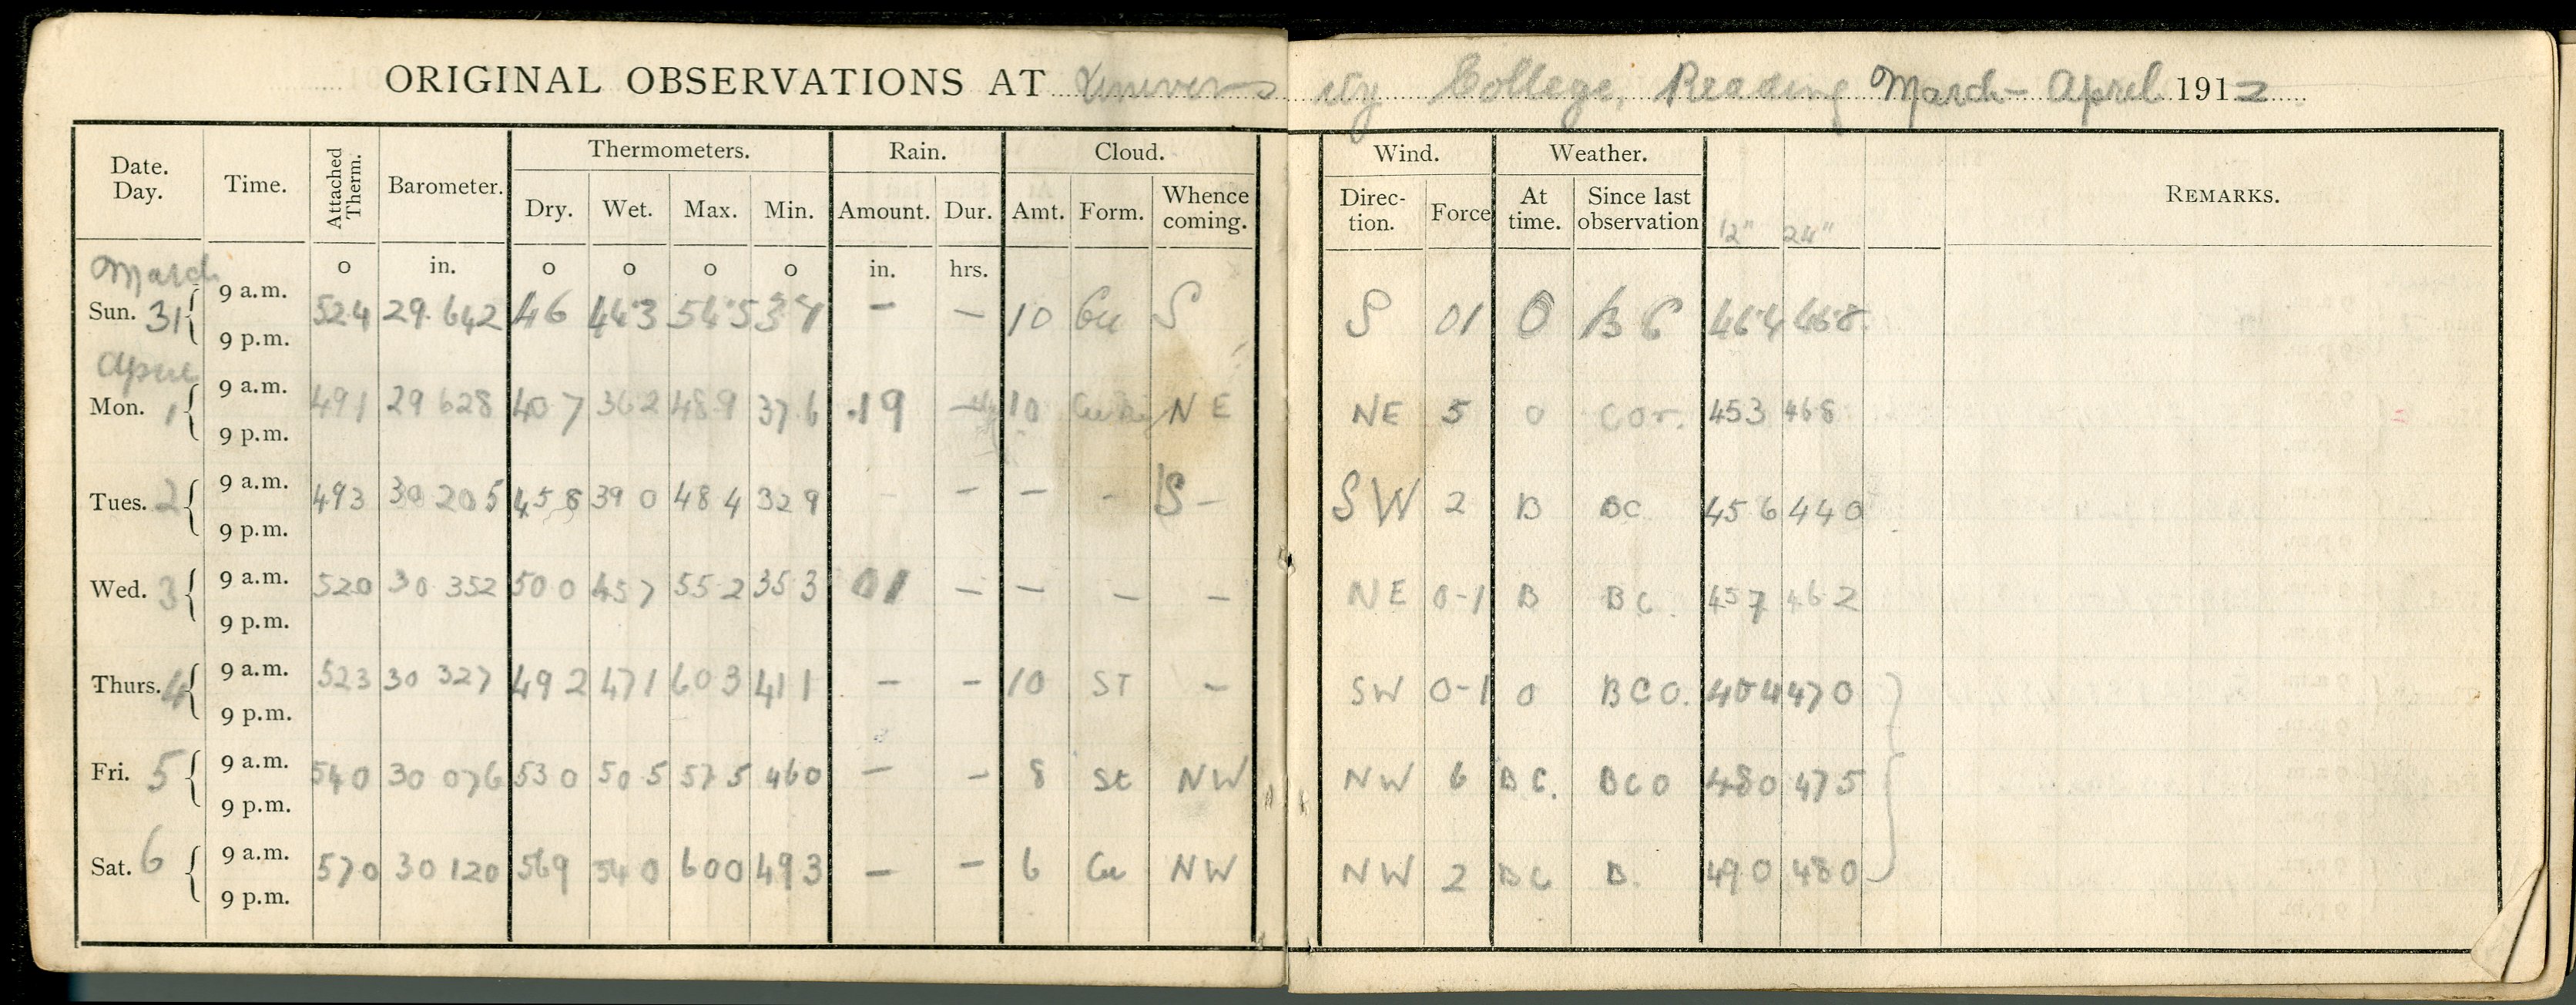 ORIGINAL OBSERVATIONS AT University College, Reading March - April 1912
Date. Day. Time. Attached Therm. Barometer. Thermometers. Rain. Cloud. Wind. Weather. REMARKS.
Dry. Wet. Max. Min. Amount. Dur. Amt. Form. Whence coming. Direc-tion. Force At time. Since last observation 12" 24"
March o in. o o o o in. hrs.
Sun. 31 9 a.m. 524 29.642 46 44.3 54.5 — — 10 Cu S S 01 O B C 468
9 p.m.
April
Mon. 1 9 a.m. 491 29 628 40 7 36 2 48 9 37 6 .19 — 10 N E NE 5 0 C O r. 453 468
9 p.m.
Tues. 2 9 a.m. 493 30 205 45 8 39 0 48 4 32 9 — — - S - S W 2 B BC 456 440
9 p.m.
Wed. 3 9 a.m. 520 30 352 50 0 45 7 55 2 35 3 01 — — — — NE 0-1 B B C. 457 46 2
9 p.m.
Thurs. 4 9 a.m. 523 30 327 49 2 47 1 60 3 41 1 — — 10 ST — SW 0-1 0 B C O. 470
9 p.m.
Fri. 5 9 a.m. 540 30 076 53 0 50 5 57 5 460 — — 8 St NW NW 6 B C. BCO 480 475
9 p.m.
Sat. 6 9 a.m. 570 30 120 569 54 0 600 493 — — 6 Cu NW NW 2 BC B. 490 480
9 p.m.